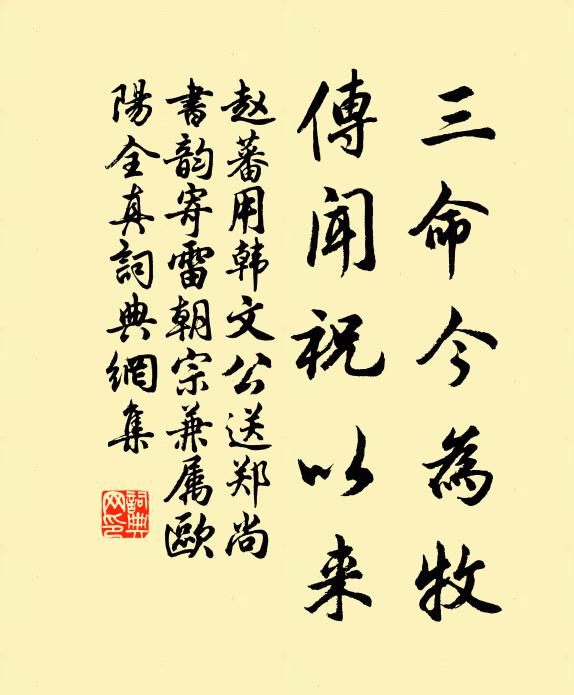 三命今為牧
傳聞祝以来
赵蕃用韩文公送郑尚
書韵寄雷朝宗兼属歐
陽全真詞典網集
詞典网印